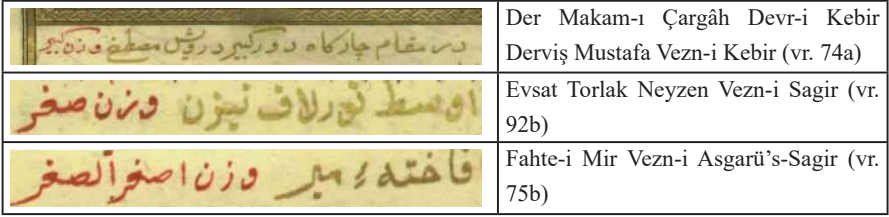 در مقام چارکاه دور کبیر درویش مصطفی وزن کبیر
Der Makam-ı Çargâh Devr-i Kebir
Derviş Mustafa Vezn-i Kebir (vr. 74a)
اوسط تورلاق نیزن وزن صغر
Evsat Torlak Neyzen Vezn-i Sagir (vr.
92b)
فاختهء میر وزن اصغر الصغر
Fahte-i Mir Vezn-i Asgarü’s-Sagir (vr.
75b)